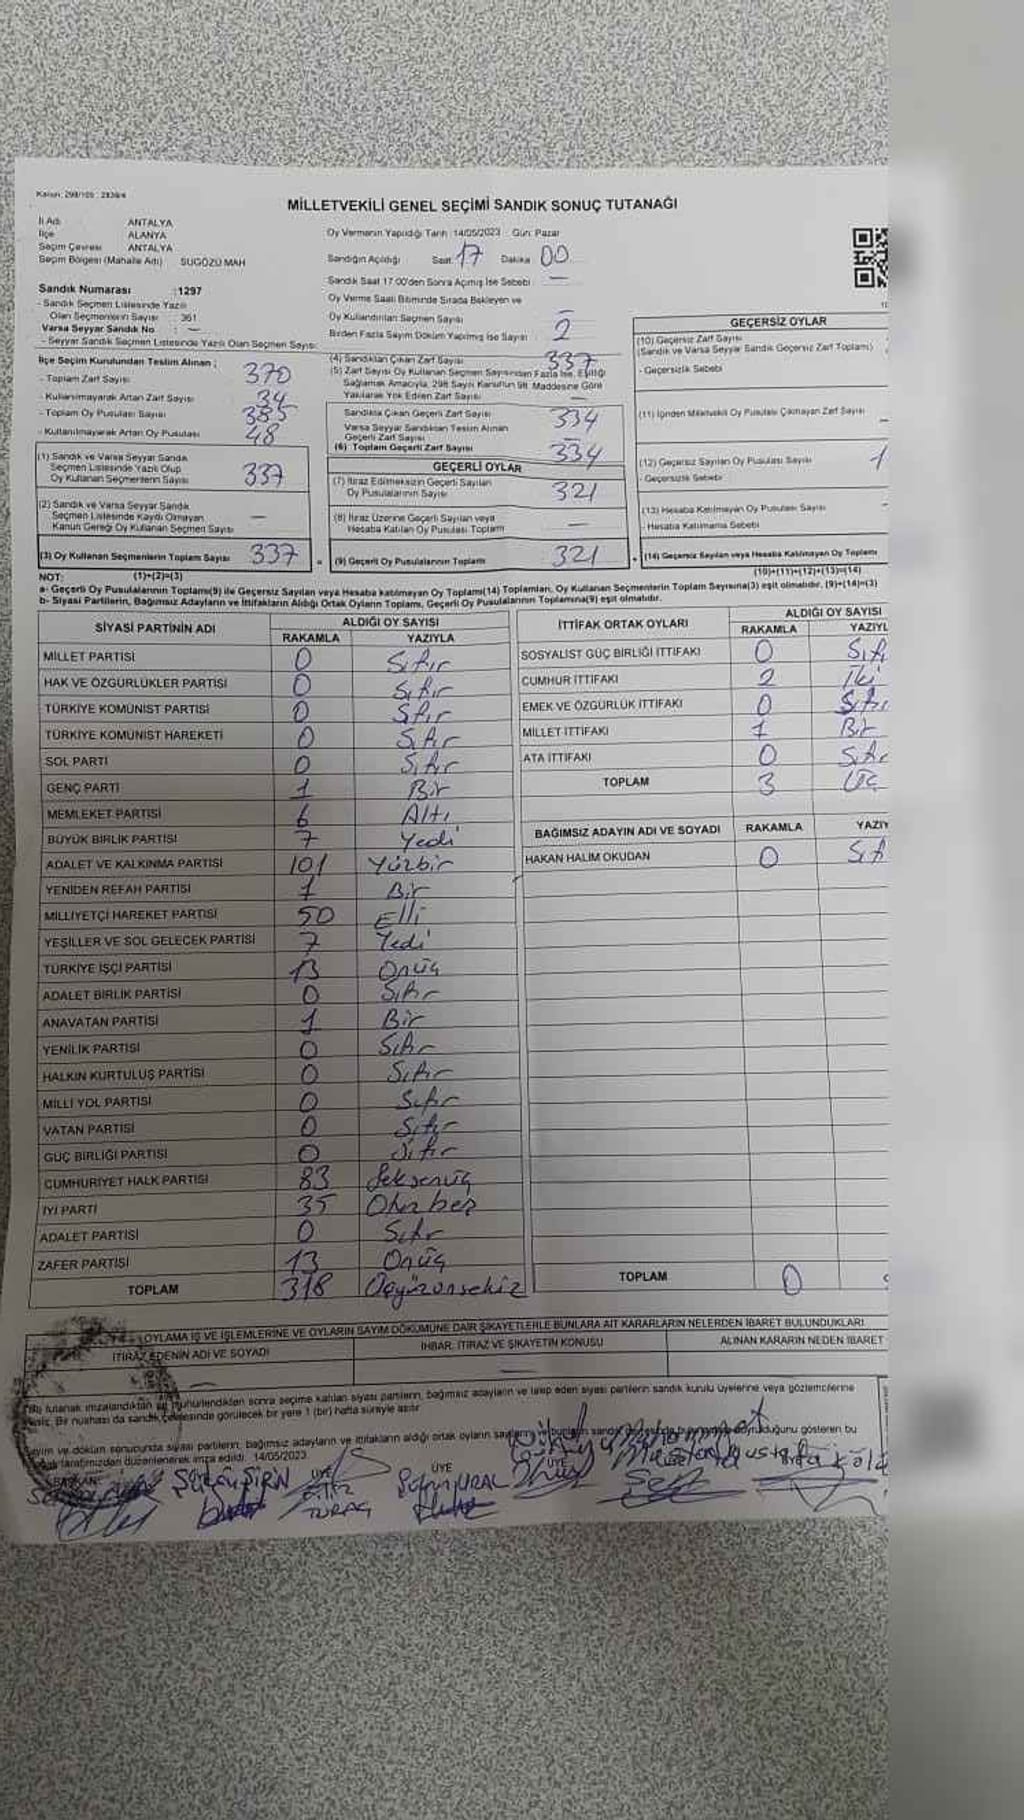 Kanun: 298/105 : 2839/4
MİLLETVEKİLİ GENEL SEÇİMİ SANDIK SONUÇ TUTANAĞI
İl Adı : ANTALYA
İlçe : ALANYA
Seçim Çevresi : ANTALYA
Seçim Bölgesi (Mahalle Adı) SUGÖZÜ MAH
Oy Vermenin Yapıldığı Tarih :14/05/2023 Gün: Pazar
Sandığın Açıldığı : Saat 17 Dakika 00
Sandık Saat 17:00'den Sonra Açılmış İse Sebebi : —
Sandık Numarası :1297
- Sandık Seçmen Listesinde Yazılı
Olan Seçmenlerin Sayısı : 361
Varsa Seyyar Sandık No : —
- Seyyar Sandık Seçmen Listesinde Yazılı Olan Seçmen Sayısı:
Oy Verme Saati Bitiminde Sırada Bekleyen ve
Oy Kullandırılan Seçmen Sayısı : —
Birden Fazla Sayım Döküm Yapılmış İse Sayısı : 2
İlçe Seçim Kurulundan Teslim Alınan ;
- Toplam Zarf Sayısı 370
- Kullanılmayarak Artan Zarf Sayısı 34
- Toplam Oy Pusulası Sayısı 385
- Kullanılmayarak Artan Oy Pusulası 48
(4) Sandıktan Çıkan Zarf Sayısı 337
(5) Zarf Sayısı Oy Kullanan Seçmen Sayısından Fazla İse, Eşitliği
Sağlamak Amacıyla, 298 Sayılı Kanun'un 98. Maddesine Göre
Yakılarak Yok Edilen Zarf Sayısı —
Sandıkta Çıkan Geçerli Zarf Sayısı 334
Varsa Seyyar Sandıktan Teslim Alınan
Geçerli Zarf Sayısı —
(6) Toplam Geçerli Zarf Sayısı 334
(1) Sandık ve Varsa Seyyar Sandık
Seçmen Listesinde Yazılı Olup
Oy Kullanan Seçmenlerin Sayısı 337
(2) Sandık ve Varsa Seyyar Sandık
Seçmen Listesinde Kaydı Olmayan
Kanun Gereği Oy Kullanan Seçmen Sayısı —
(3) Oy Kullanan Seçmenlerin Toplam Sayısı 337 =
GEÇERLİ OYLAR
(7) İtiraz Edilmeksizin Geçerli Sayılan
Oy Pusulalarının Sayısı 321
(8) İtiraz Üzerine Geçerli Sayılan veya
Hesaba Katılan Oy Pusulası Toplamı —
(9) Geçerli Oy Pusulalarının Toplamı 321 +
GEÇERSİZ OYLAR
(10) Geçersiz Zarf Sayısı
(Sandık ve Varsa Seyyar Sandık Geçersiz Zarf Toplamı)
- Geçersizlik Sebebi
(11) İçinden Milletvekili Oy Pusulası Çıkmayan Zarf Sayısı
(12) Geçersiz Sayılan Oy Pusulası Sayısı 1
- Geçersizlik Sebebi
(13) Hesaba Katılmayan Oy Pusulası Sayısı
- Hesaba Katılmama Sebebi
(14) Geçersiz Sayılan veya Hesaba Katılmayan Oy Toplamı
NOT: (1)+(2)=(3)
(10)+(11)+(12)+(13)=(14)
a- Geçerli Oy Pusulalarının Toplamı(9) ile Geçersiz Sayılan veya Hesaba katılmayan Oy Toplamı(14) Toplamları, Oy Kullanan Seçmenlerin Toplam Sayısına(3) eşit olmalıdır. (9)+(14)=(3)
b- Siyasi Partilerin, Bağımsız Adayların ve İttifakların Aldığı Ortak Oyların Toplamı, Geçerli Oy Pusulalarının Toplamına(9) eşit olmalıdır.
SİYASİ PARTİNİN ADI ALDIĞI OY SAYISI
RAKAMLA YAZIYLA
MİLLET PARTİSİ 0 Sıfır
HAK VE ÖZGÜRLÜKLER PARTİSİ 0 Sıfır
TÜRKİYE KOMÜNİST PARTİSİ 0 Sıfır
TÜRKİYE KOMÜNİST HAREKETİ 0 Sıfır
SOL PARTİ 0 Sıfır
GENÇ PARTİ 1 Bir
MEMLEKET PARTİSİ 6 Altı
BÜYÜK BİRLİK PARTİSİ 7 Yedi
ADALET VE KALKINMA PARTİSİ 101 Yüzbir
YENİDEN REFAH PARTİSİ 1 Bir
MİLLİYETÇİ HAREKET PARTİSİ 50 Elli
YEŞİLLER VE SOL GELECEK PARTİSİ 7 Yedi
TÜRKİYE İŞÇİ PARTİSİ 13 Onüç
ADALET BİRLİK PARTİSİ 0 Sıfır
ANAVATAN PARTİSİ 1 Bir
YENİLİK PARTİSİ 0 Sıfır
HALKIN KURTULUŞ PARTİSİ 0 Sıfır
MİLLİ YOL PARTİSİ 0 Sıfır
VATAN PARTİSİ 0 Sıfır
GÜÇ BİRLİĞİ PARTİSİ 0 Sıfır
CUMHURİYET HALK PARTİSİ 83 Seksenüç
İYİ PARTİ 35 Otuzbeş
ADALET PARTİSİ 0 Sıfır
ZAFER PARTİSİ 13 Onüç
TOPLAM 318 Üçyüzonsekiz
İTTİFAK ORTAK OYLARI ALDIĞI OY SAYISI
RAKAMLA YAZIYL
SOSYALİST GÜÇ BİRLİĞİ İTTİFAKI 0 Sıfı
CUMHUR İTTİFAKI 2 İki
EMEK VE ÖZGÜRLÜK İTTİFAKI 0 Sıfır
MİLLET İTTİFAKI 1 Bir
ATA İTTİFAKI 0 Sıfır
TOPLAM 3 Üç
BAĞIMSIZ ADAYIN ADI VE SOYADI RAKAMLA YAZIY
HAKAN HALİM OKUDAN 0 Sıfı
TOPLAM 0
OYLAMA İŞ VE İŞLEMLERİNE VE OYLARIN SAYIM DÖKÜMÜNE DAİR ŞİKAYETLERLE BUNLARA AİT KARARLARIN NELERDEN İBARET BULUNDUKLARI
İTİRAZ EDENİN ADI VE SOYADI İHBAR, İTİRAZ VE ŞİKAYETİN KONUSU ALINAN KARARIN NEDEN İBARET
— —
tutanak imzalandıktan ve mühürlendikten sonra seçime katılan siyasi partilerin, bağımsız adayların ve talep eden siyasi partilerin sandık kurulu üyelerine veya gözlemcilerine
Bir nüshası da sandık çevresinde görülecek bir yere 1 (bir) hafta süreyle asılır.
ve döküm sonucunda siyasi partilerin, bağımsız adayların ve ittifakların aldığı ortak oyların gösteren bu
tarafımızdan düzenlenerek imza edildi. 14/05/2023
BAŞKAN ÜYE ÜYE ÜYE